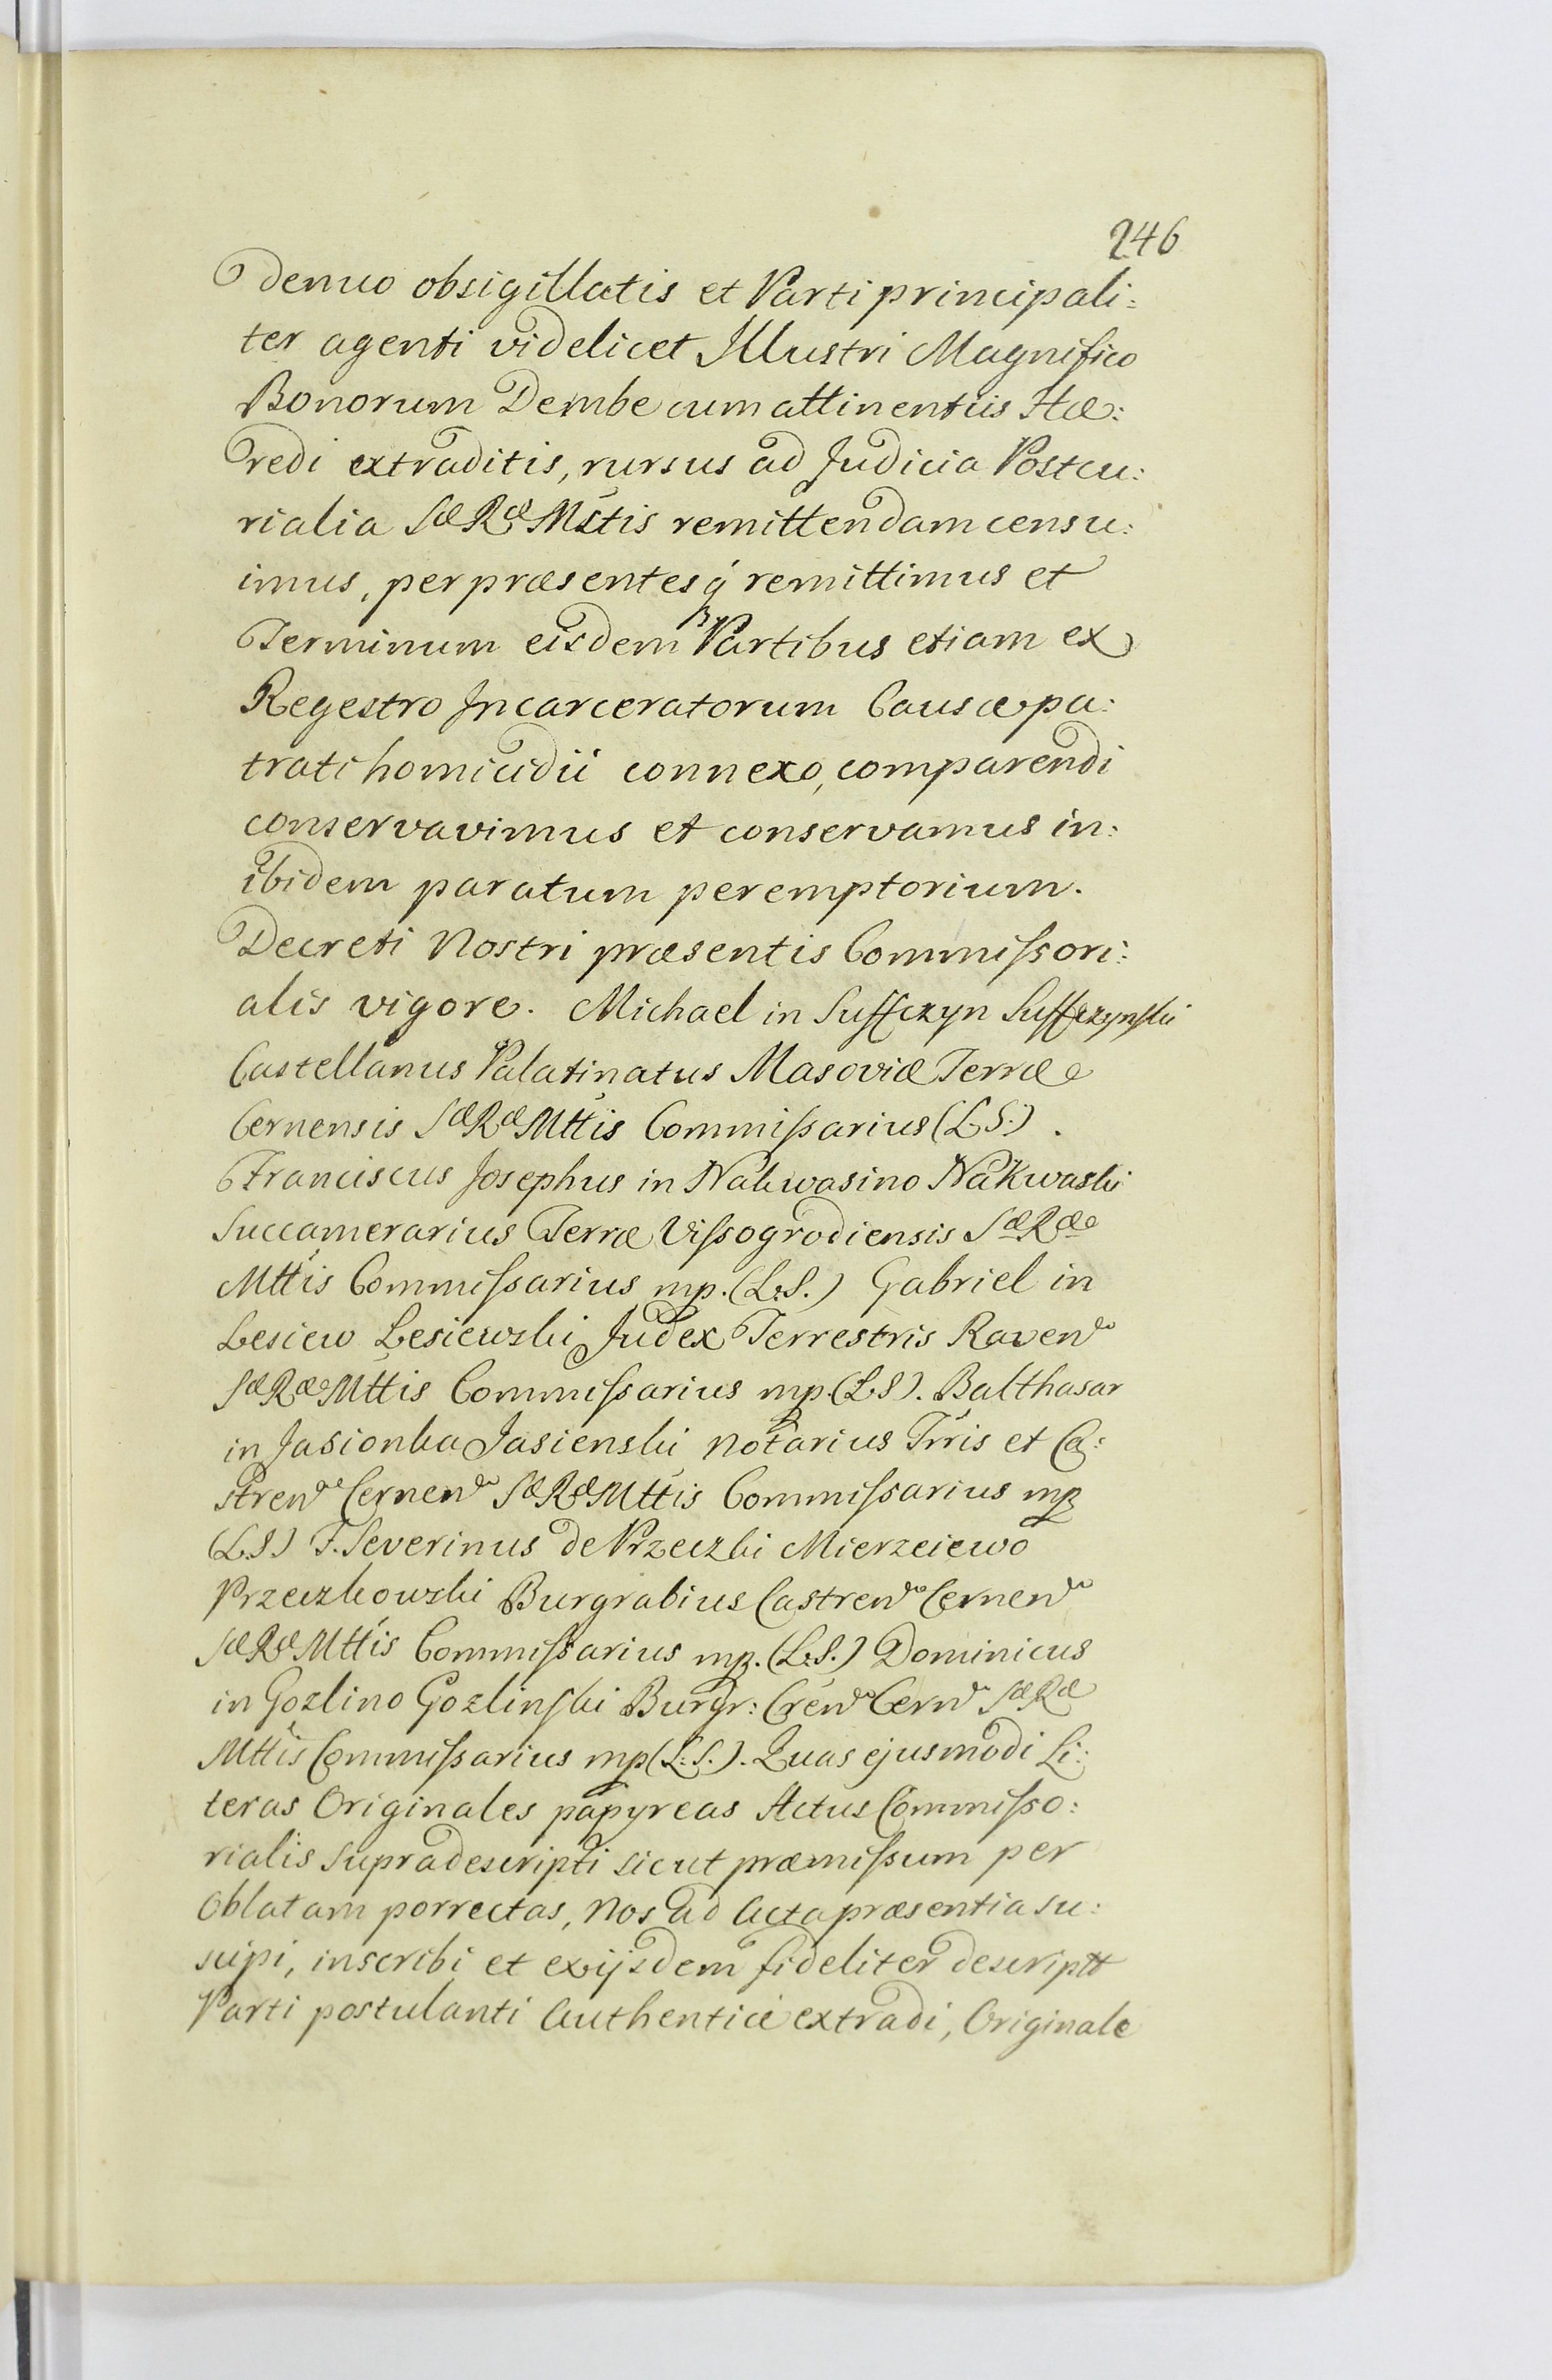 246
denuo obsigillatis et Parti principali:
ter agenti videlicet Illustri Magnifico
Bonorum Dembe cum attinentiis Hæ:
redi extraditis, rursus ad Judicia Postcu:
rialia SæRæ Mttis remittendam censu:
imus, per præsentesq́ remittimus et
Terminum eisdem Partibus etiam ex
Regestro Incarceratorum Causæ pa:
trati homicidii connexo, comparendi
conservavimus et conservamus in:
ibidem paratum peremptorium.
Decreti Nostri præsentis Commissori:
alis vigore. Michael in Suffczyn Suffczynski
Castellanus Palatinatus Masoviæ Terræ
Cernensis SæRæ Mttis Commissarius (L.S.).
Franciscus Josephus in Nakwasino Nakwaski
Succamerarius Terræ Vissogrodiensis SæRæ
Mttis Commissarius mp. (L.S.) Gabriel in
Lesiew Lesiewski Judex Terrestris Raven
SæRæ Mttis Commissarius mp. (LS). Balthasar
in Jasionka Jasienski Notarius Trris et Ca:
stren Cernen SæRæ Mttis Commissarius mp
(L.S) F. Severinus de Przeczki Mierzeiewo
Przeczkowski Burgrabius Castren Cernen
SæRæ Mttis Commissarius mp. (L.S.) Dominicus
in Gozlino Gozlinski Burgr: Cren Cern SæRæ
Mttis Commissarius mp (L.S.). Quas ejusmodi Li:
teras Originales papyreas Actus Commisso:
rialis supradescripti sicut præmissum per
Oblatam porrectas, Nos ad Acta præsentia su:
scipi, inscribi et ex ijsdem fideliter descriptt
Parti postulanti Authenticè extradi, Originale